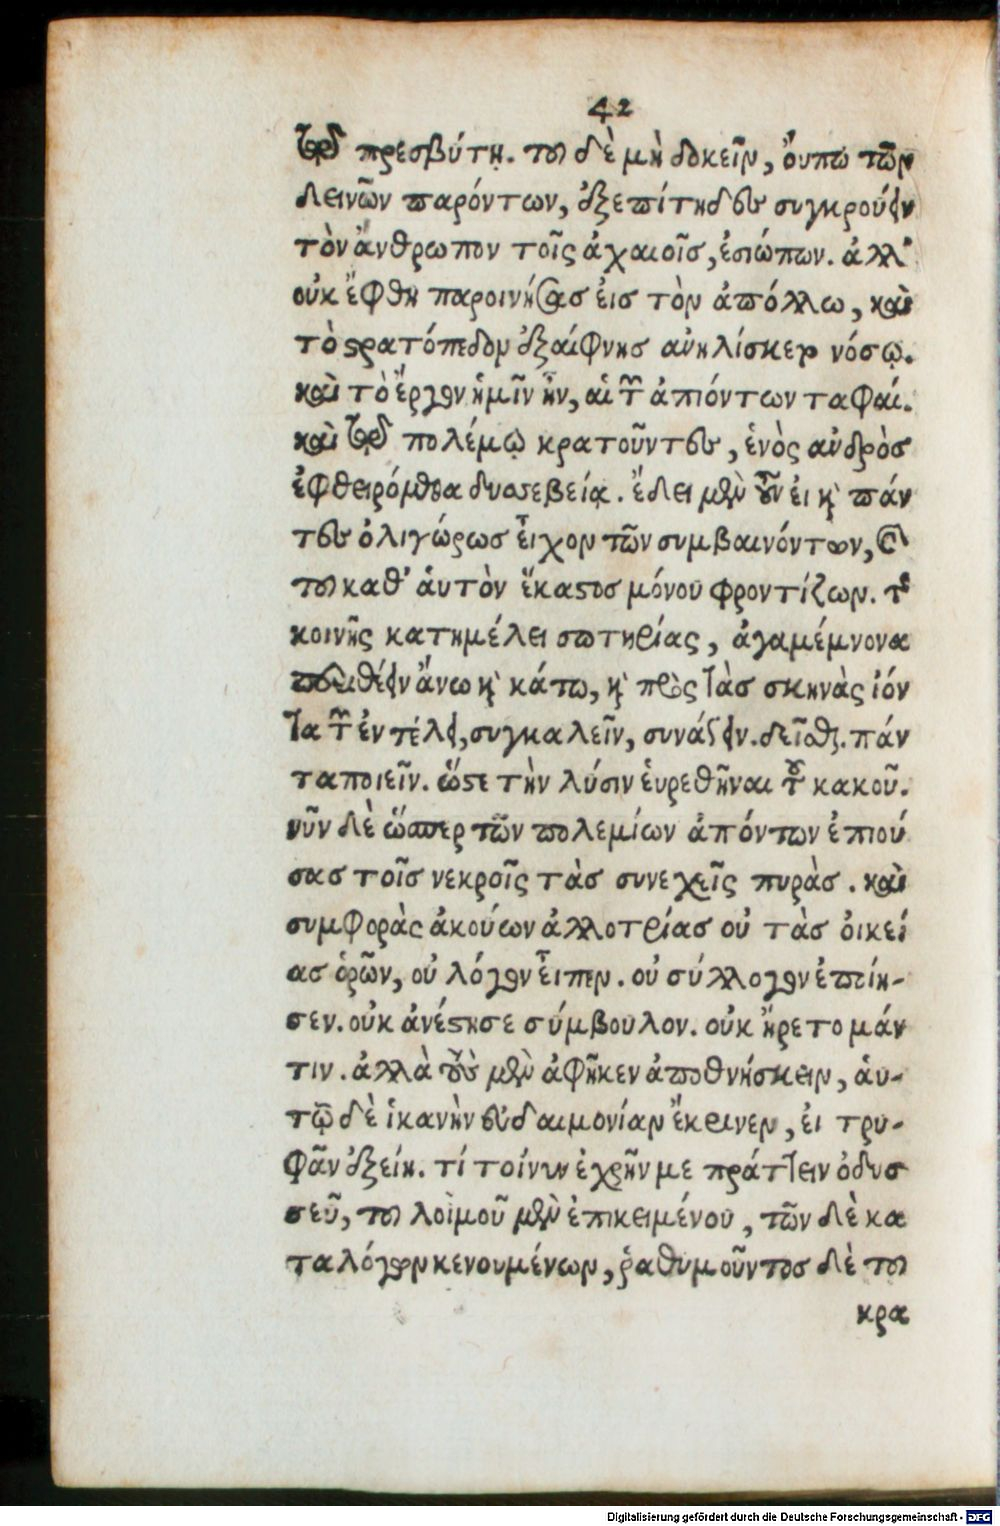 42
τῷ πρεσβύτῃ. τοῦ δὲ μὴ δοκεῖν, ὄυπω τῶν
δεινῶν παρόντων, ἐξεπίτηδες συγκρούειν
τὸν ἄνθρωπον τοῖς ἀχαιοῖς, ἐσιώπων. ἀλλ'
οὐκ ἔφθη παροινήσας ἐις τὸν ἀπόλλω, καὶ
τὸ στρατόπεδον ἐξαίφνης ἀνηλίσκεν νόσῳ.
καὶ τὸ ἔργον ἡμῖν ἦν, ἁι τῶν ἀπιόντων ταφαί.
καὶ τῷ πολέμῳ κρατοῦντες, ἑνὸς ἀνδρὸς
ἐφθειρόμεθα δυσσεβείᾳ. ἔδει μὲν οὖν ἐι καὶ πάν
τες ὀλιγώρως ἶειχον τῶν συμβαινόντων, καὶ
τοῦ καθ' ἁυτὸν ἕκαστος μόνου φροντίζων. τῆς
κοινῆς κατημέλει σωτηρίας, ἀγαμέμνονα
περιθέειν ἄνω καὶ κάτω, καὶ πρὸς τὰς σκηνὰς ἰόν
τα τῶν ἐν τέλει, συγκαλεῖν, συνάγειν. δεῖσθαι. πάν
τα ποιεῖν. ὥστε τὴν λύσιν ἑυρεθῆναι τοῦ κακοῦ.
νῦν δὲ ὥσπερ τῶν πολεμίων ἀπόντων ἐπιού
σας τοῖς νεκροῖς τὰς συνεχεῖς πυρὰς. καὶ
συμφορὰς ἀκούων ἀλλοτρίας οὐ τὰς ὀικεί
ας ὁρῶν, οὐ λόγον ἶειπεν. οὐ σύλλογον ἐποίη-
σεν. οὐκ ἀνέστησε σύμβουλον. οὐκ ἤρετο μάν
τιν. ἀλλὰ τοὺς μὲν ἀφῆκεν ἀποθνήσκειν, ἁυ-
τῷ δὲ ἱκανὴν εὐδαιμονίαν ἔκρινεν, ἐι τρυ-
φᾶν ἐξείη. τί τοίνυν ἐχρῆν με πράττειν ὀδυσ
σεῦ, τοῦ λοιμοῦ μὲν ἐπικειμένου, τῶν δὲ κα
ταλόγων κενουμένων, ῥαθυμοῦντος δὲ τοῦ
κρα
Digitalisierung gefördert durch die Deutsche Forschungsgemeinschaft - DFG